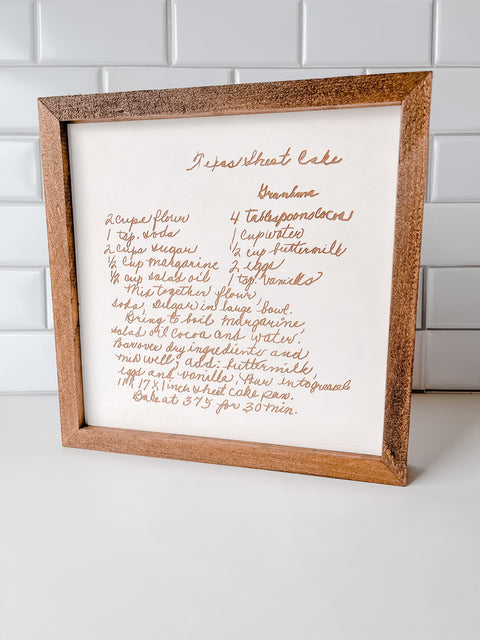 Texas Sheet Cake
Grandma
2 cups flour 4 tablespoons cocoa
1 tsp. soda 1 cup water
2 cups sugar ½ cup buttermilk
½ cup margarine 2 eggs
½ cup salad oil 1 tsp. vanilla
Mix together flour,
soda, sugar in large bowl.
Bring to boil margarine,
salad oil cocoa and water.
Pour over dry ingredients and
mix well, add: buttermilk,
eggs and vanilla. Pour into greased
17 x 1 inch sheet cake pan.
Bake at 375 for 30 min.